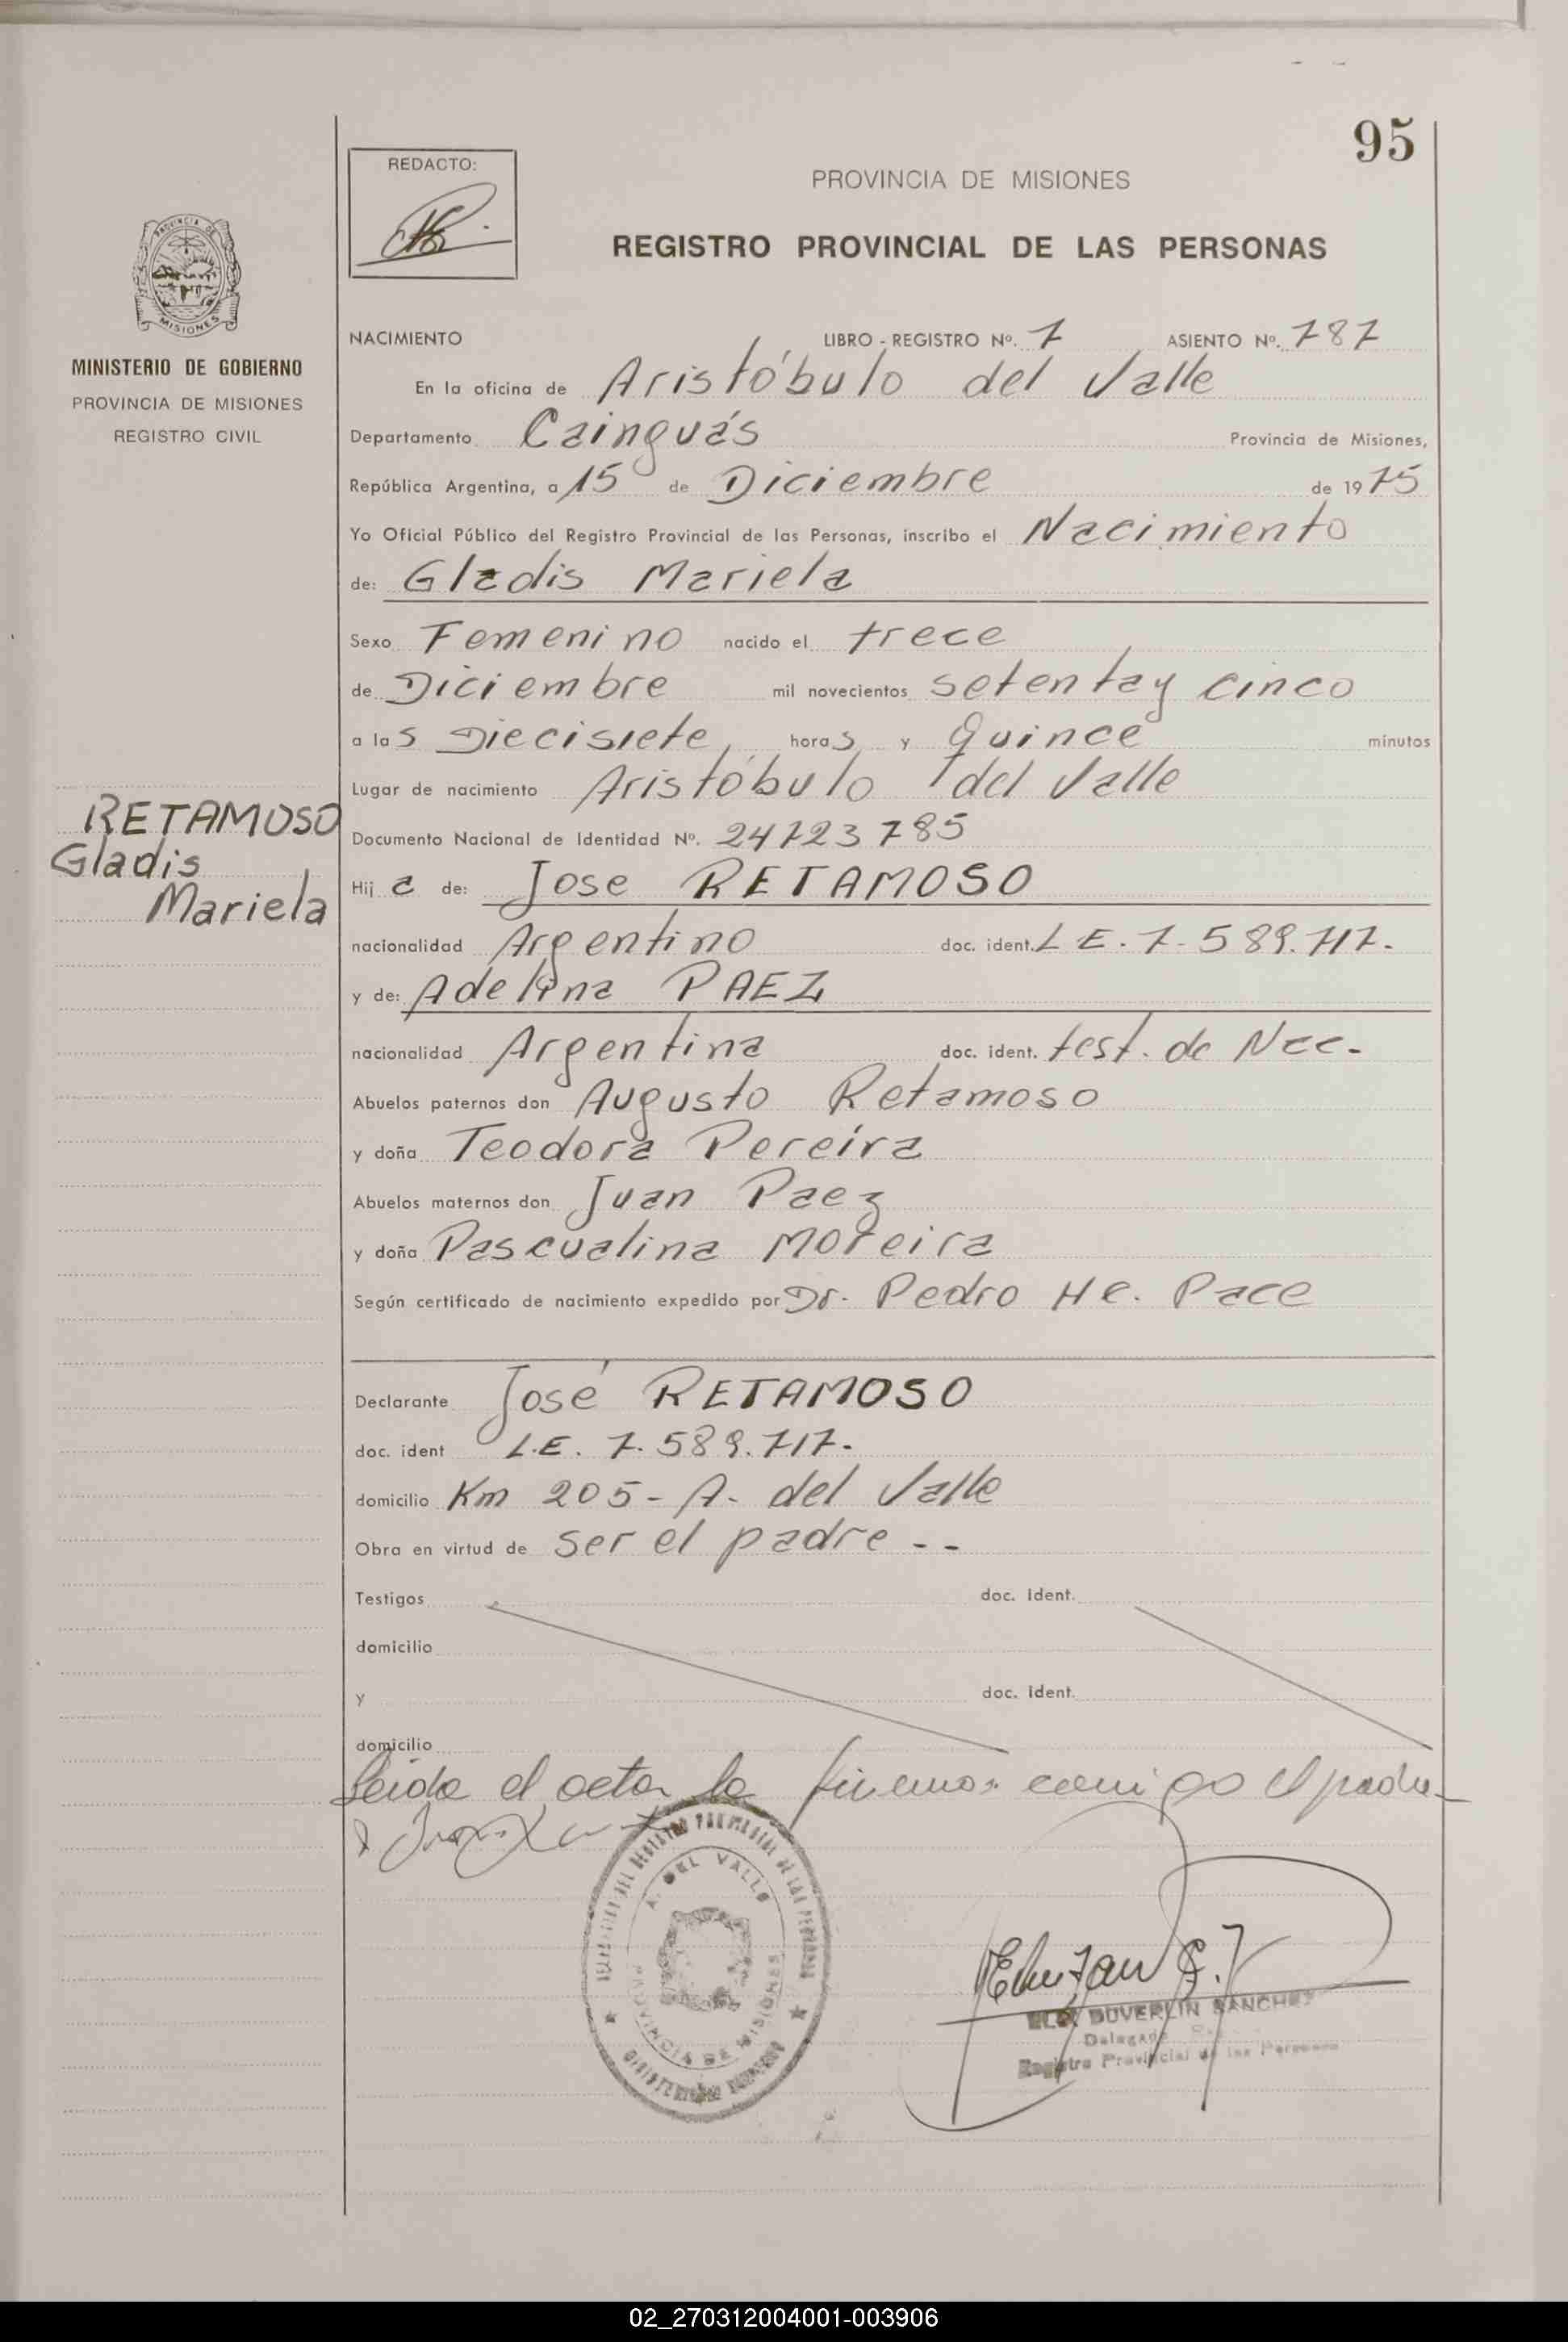 95
REDACTO:
PROVINCIA DE MISIONES
REGISTRO PROVINCIAL DE LAS PERSONAS
PROVINCIA DE
MISIONES
MINISTERIO DE GOBIERNO
PROVINCIA DE MISIONES
REGISTRO CIVIL
NACIMIENTO LIBRO - REGISTRO Nº. 7 ASIENTO Nº. 787
En la oficina de Aristóbulo del Valle
Departamento Cainguás Provincia de Misiones,
República Argentina, a 15 de Diciembre de 1975
Yo Oficial Público del Registro Provincial de las Personas, inscribo el Nacimiento
de: Gladis Mariela
Sexo Femenino nacido el trece
de Diciembre mil novecientos setenta y cinco
a las Diecisiete, horas y Quince minutos
Lugar de nacimiento Aristóbulo del Valle
RETAMOSO
Gladis
Mariela
Documento Nacional de Identidad Nº. 24723785
Hija de: Jose RETAMOSO
nacionalidad Argentino doc. ident. L E. 7.589.717.
y de: Adelina PAEZ
nacionalidad Argentina doc. ident. test. de Nac.
Abuelos paternos don Augusto Retamoso
y doña Teodora Pereira
Abuelos maternos don Juan Paez
y doña Pascualina Moreira
Según certificado de nacimiento expedido por Dr. Pedro H C. Pace
Declarante José RETAMOSO
doc. ident L.E. 7.589.717.
domicilio Km 205 - A. del Valle
Obra en virtud de ser el padre - -
Testigos doc. ident.
domicilio
y doc. ident.
domicilio
Leida el acta la firmamos conmigo el padre
A. DEL VALLE
PROVINCIA DE MISIONES
DUVERLIN SANCHEZ
Registro Provincial de las Personas
02_270312004001-003906